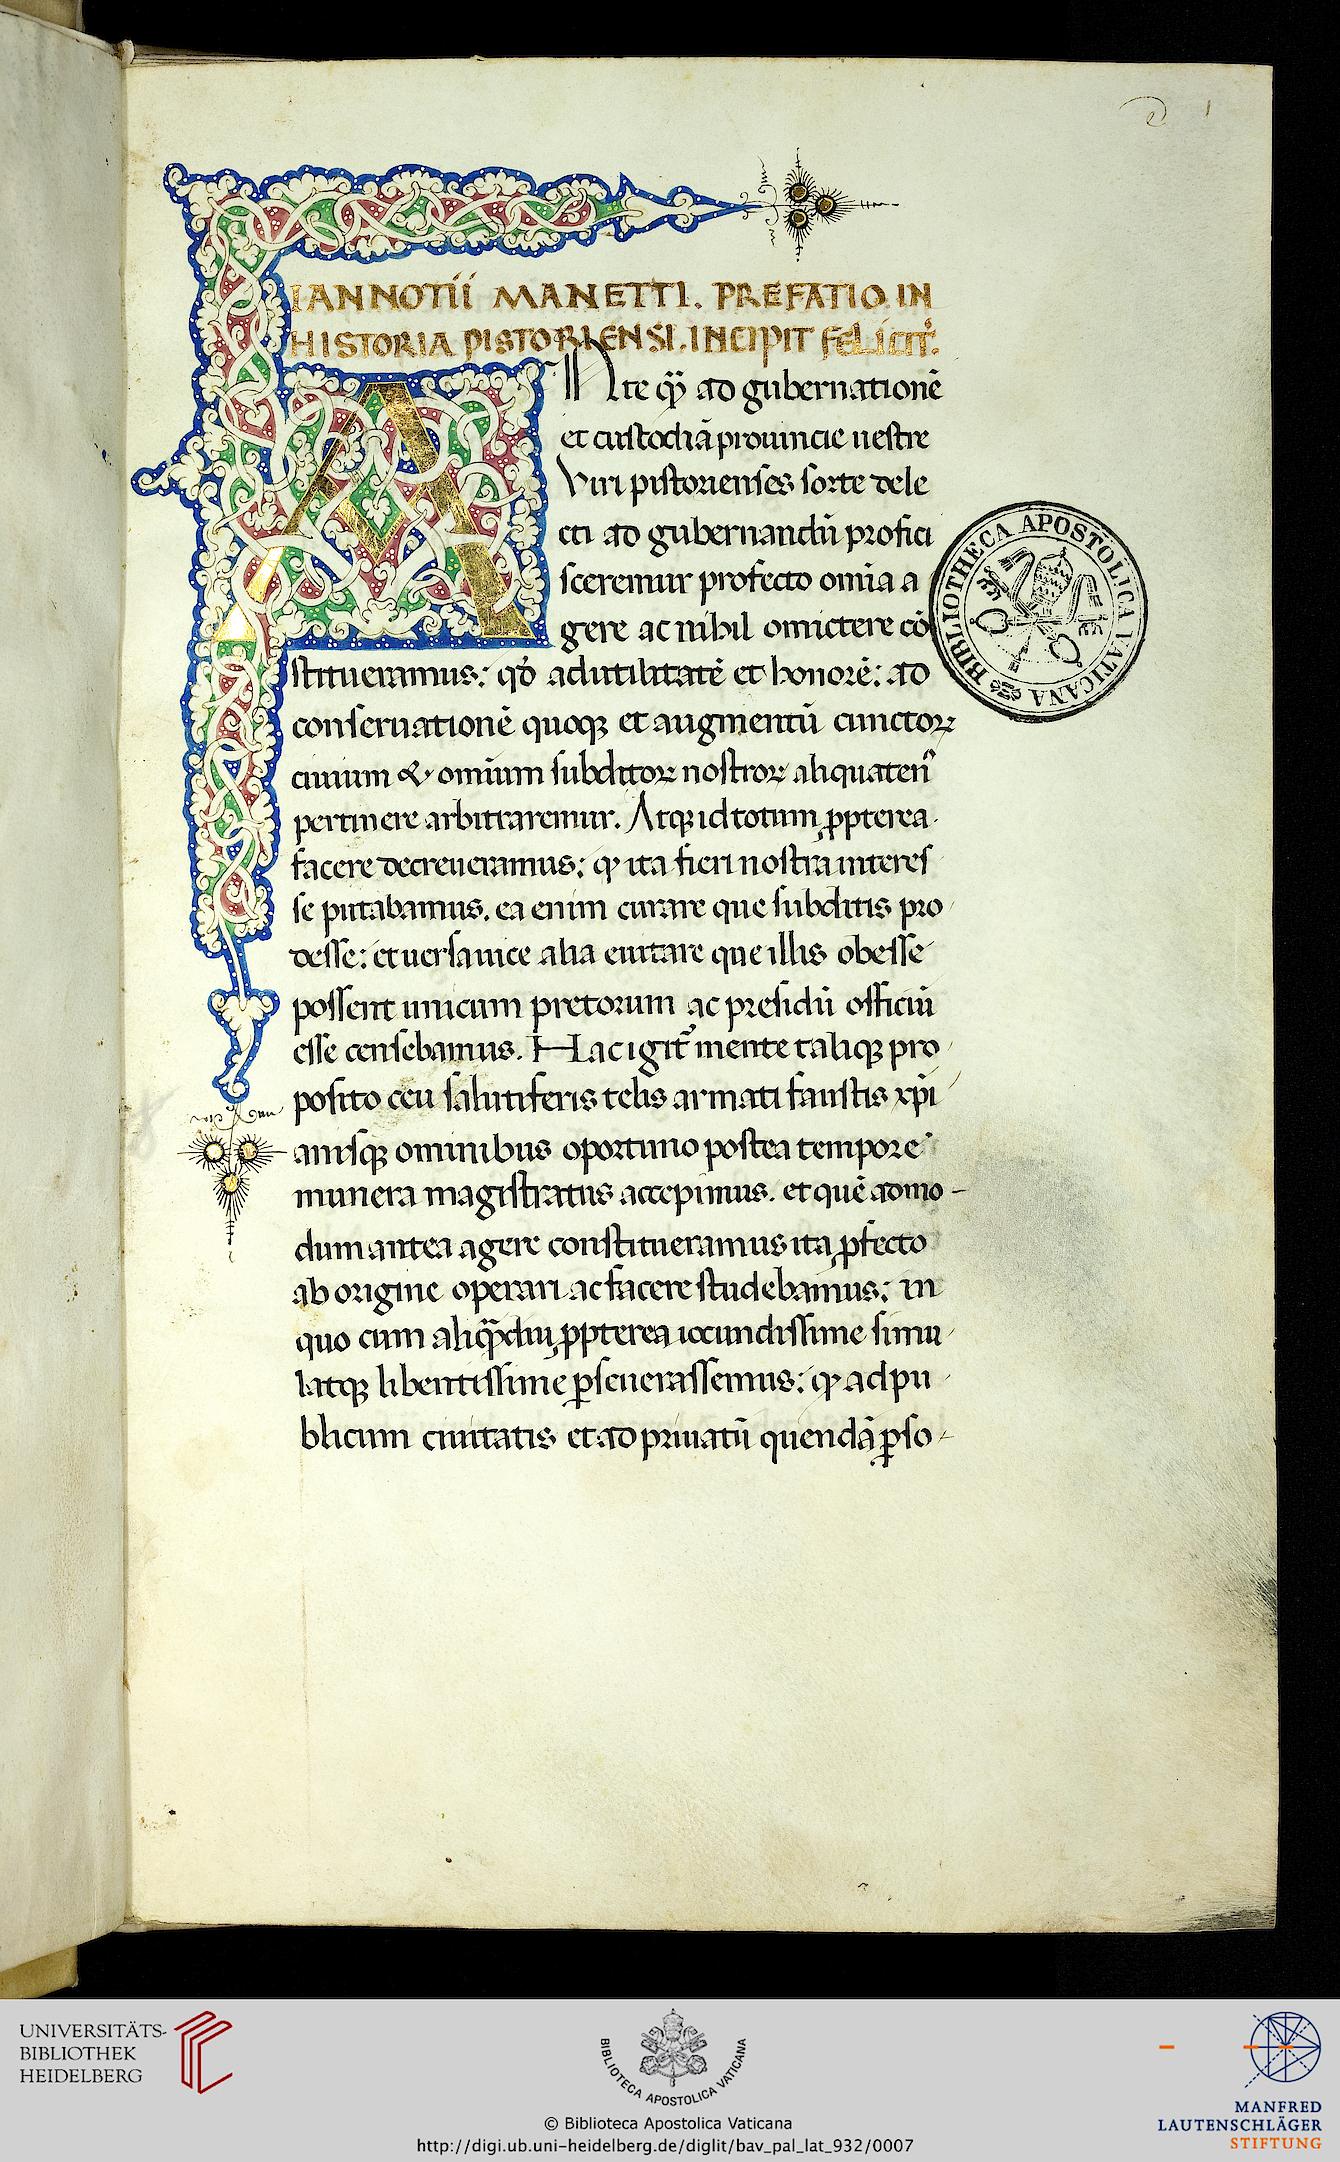 IANNOTII MANETTI. PREFATIO IN
HISTORIA PISTORIENSI. INCIPIT FELICIT͛.
ANte qͣꝫ ad gubernationē
et custodiā prouincie uestre
Viri pistorienses sorte dele
cti ad gubernandū profici
sceremur profecto omīa a
gere ac nihil omictere cō
stitueramus: qđ ad utilitatē et honorē: ad
conseruationē quoqꝫ et augmentū cunctoꝝ
ciuium & omīum subditoꝝ nostroꝝ aliquatenꝰ
pertinere arbitraremur. Atqꝫ id totum ꝓpterea
facere decreueramus: ꝙ ita fieri nostra interes
se putabamus. ea enim curare que subditis pro
desse: et uersa uice alia euitare que illis obesse
possent unicum pretorum ac presidū officiū
esse censebamus. Hac igit᷑ mente taliqꝫ pro
posito ceu salutiferis telis armati faustis xp̄i
anisqꝫ ominibus oportuno postea tempore
munera magistratus accepimus. et quē admo
dum antea agere constitueramus ita ꝓfecto
ab origine operari ac facere studebamus: in
quo cum aliqͣdiu ꝓpterea iocundissime simu
latqꝫ libentissime ꝑseuerassemus: ꝙ ad pu
blicum ciuitatis et ad priuatū quendā ꝑso
BIBLIOTHECA APOSTOLICA VATICANA
1
UNIVERSITÄTS-
BIBLIOTHEK
HEIDELBERG
BIBLIOTECA APOSTOLICA VATICANA
© Biblioteca Apostolica Vaticana
http://digi.ub.uni-heidelberg.de/diglit/bav_pal_lat_932/0007
MANFRED
LAUTENSCHLÄGER
STIFTUNG